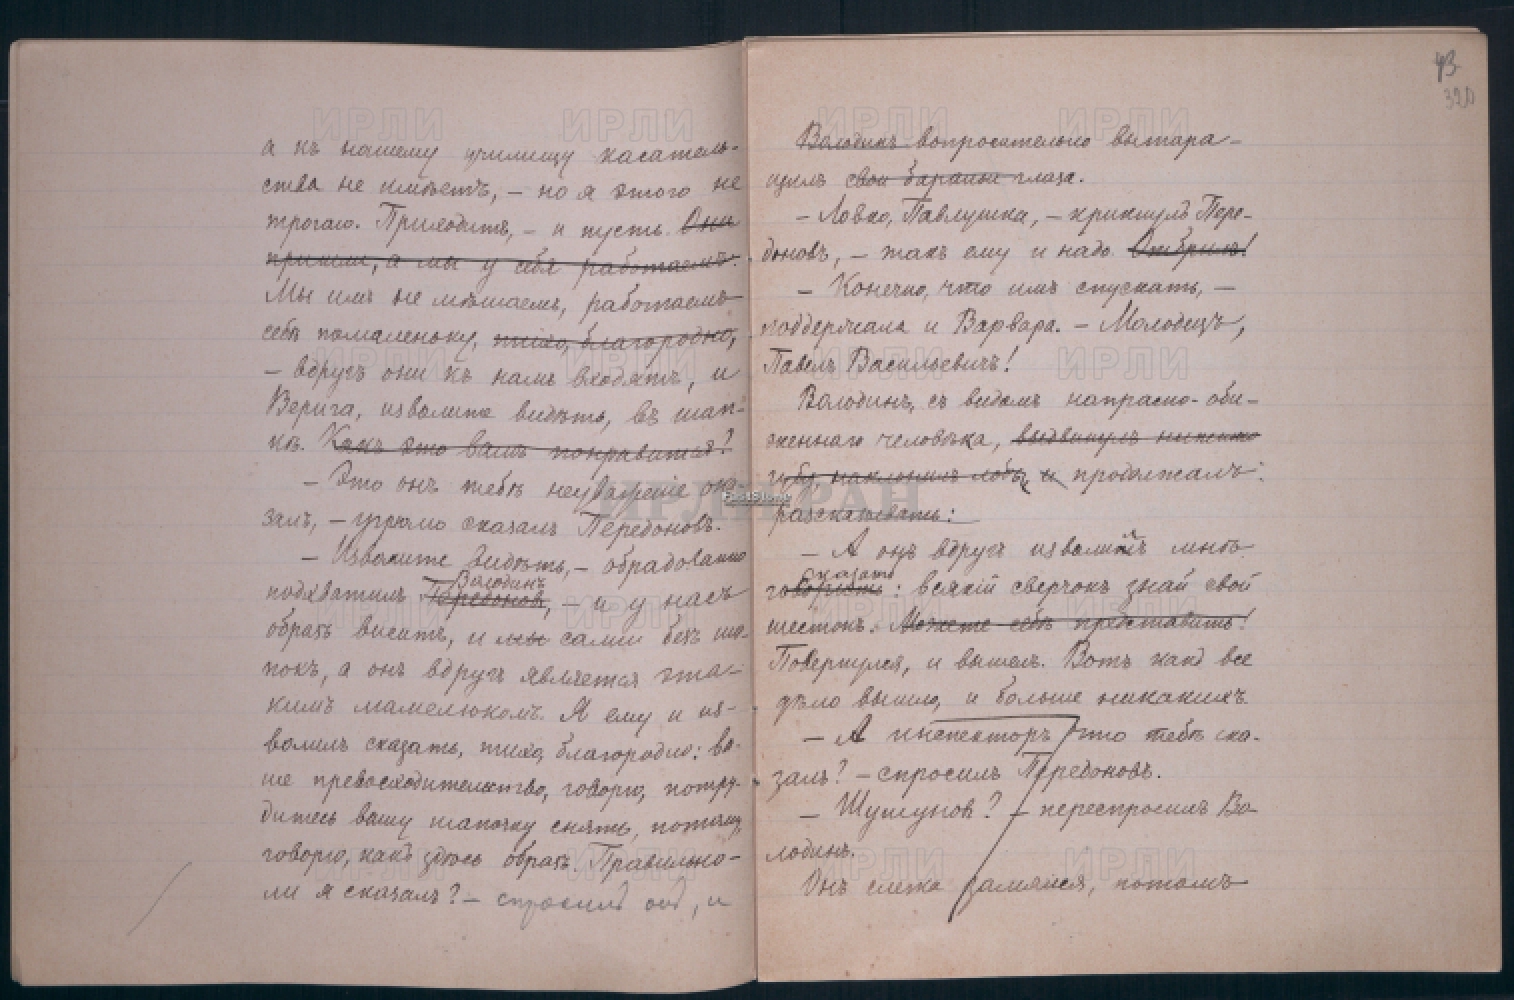 а къ нашему училищу касатель-
ства не имѣетъ, – но я этого не
трогаю. Приходитъ, – и пусть. Они
пришли, а мы у себя работаемъ.
Мы имъ не мѣшаемъ, работаемъ
себѣ помаленьку, тихо, благородно,
– вдругъ они къ намъ входятъ, и
Верига, изволите видѣть, въ шап-
кѣ. Какъ это вамъ понравится?
– Это онъ тебѣ неуваженіе ока-
залъ, – угрюмо сказалъ Передоновъ.
– Изволите видѣть, – обрадованно
Володинъ
подхватилъ Передоновъ, – и у насъ
образъ виситъ, и мы сами безъ ша-
покъ, а онъ вдругъ является эта-
кимъ мамелюкомъ. Я ему и из-
волилъ сказать, тихо, благородно: ва-
ше превосходительство, говорю, потру-
дитесь вашу шапочку снять, потому,
говорю, какъ здѣсь образъ. Правильно-
ли я сказалъ? – спросилъ онъ, и
43
320
Володинъ вопросительно вытара-
щилъ свои бараньи глаза.
– Ловко, Павлушка, – крикнулъ Пере-
доновъ, – такъ ему и надо. Отбрилъ!
– Конечно, что имъ спускать, –
поддержала и Варвара. – Молодецъ,
Павелъ Васильевичъ!
Володинъ, съ видомъ напрасно-оби-
женнаго человѣка, выдвинулъ нижнюю
губу, наклонилъ лобъ, и продолжалъ:
разсказывать:
– А онъ вдругъ изволилъ мнѣ
сказать
говорить: всякій сверчокъ знай свой
шестокъ. Можете себѣ представить!
Повернулся, и вышелъ. Вотъ какъ все
дѣло вышло, и больше никакихъ.
– А инспекторъ что тебѣ ска-
залъ? – спросилъ Передоновъ.
– Шумуновъ? – переспросилъ Во-
лодинъ.
Онъ слегка замялся, потомъ
ИРЛИ РАН
FastStone